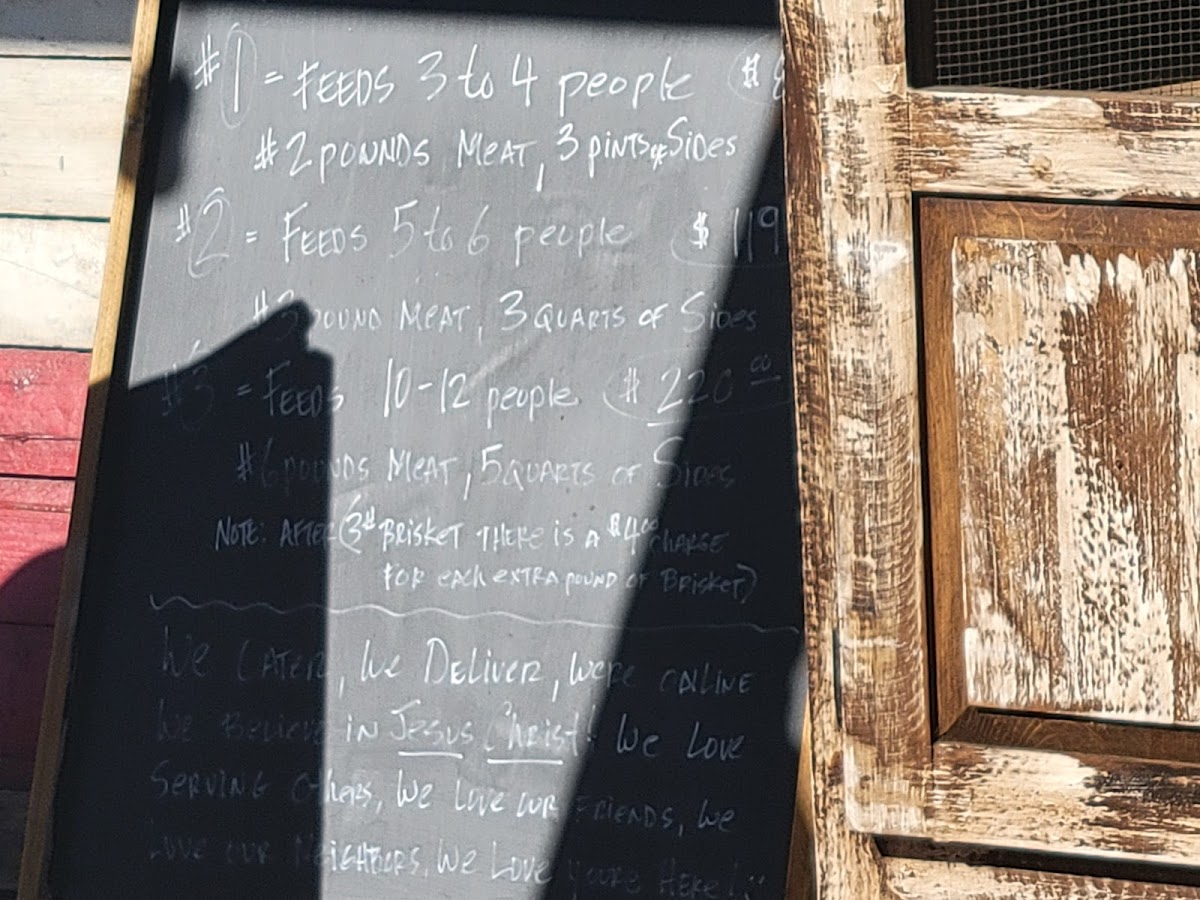 #1 = FEEDS 3 to 4 people $
#2 POUNDS MEAT, 3 PINTS of SIDES
#2 = FEEDS 5 to 6 people $119
#3 POUND MEAT, 3 QUARTS OF SIDES
#3 = FEEDS 10-12 people $220 00
#6 POUNDS MEAT, 5 QUARTS OF SIDES
NOTE: AFTER (3# BRISKET THERE IS A $4 00 CHARGE
FOR EACH EXTRA POUND OF BRISKET)
WE CATER, WE DELIVER, WE'RE ONLINE
WE BELIEVE IN JESUS CHRIST! WE LOVE
SERVING OTHERS, WE LOVE OUR FRIENDS, WE
LOVE OUR NEIGHBORS, WE LOVE YOU'RE HERE!